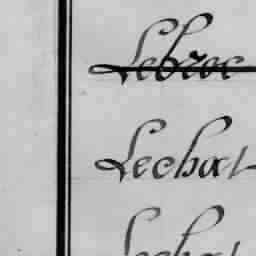 Lebroc
Lechat
Lechat